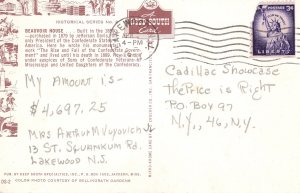 HISTORICAL SERIES No.
BEAUVOIR HOUSE - Built in the 185
purchased in 1879 by Jefferson Davis,
only President of the Confederate States of
America. Here he wrote his monumental
work "The Rise and Fall of the Confederate Govern-
ment" and lived until his death in 1889. Now operated
under auspices of Sons of Confederate Veterans-of-
Mississippi and United Daughters of the Confederacy.
DEEP SOUTH
Card
PM
3¢
LIBERTY
My Amount is-
$4,697.25
Mrs Arthur M
13 St. Swankum Rd,
Lakewood N.J.
Cadillac Showcase
The Price is Right
P.O. Box 97
N.Y., 46, N.Y.
PUB. BY DEEP SOUTH SPECIALTIES, INC., P. O. BOX 1902, JACKSON, MISS.
DS-2
COLOR PHOTO COURTESY OF BELLINGRATH GARDENS